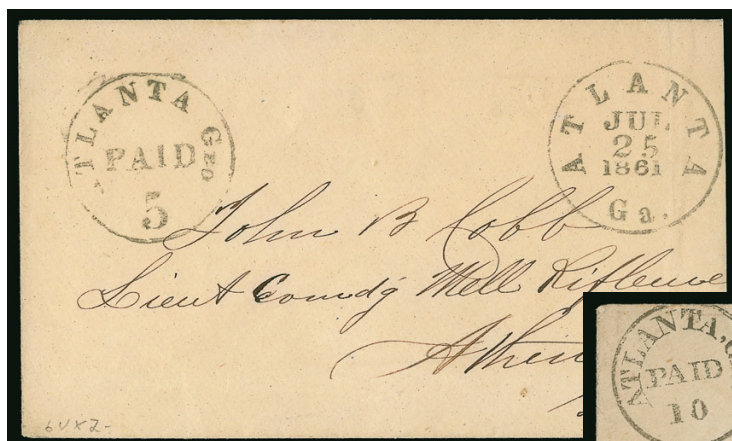 ATLANTA GEO
PAID
5
ATLANTA
JUL
25
1861
Ga.
John B Cobb
Lieut Comdg Mell Riflemen
Athens
ATLANTA, G
PAID
10